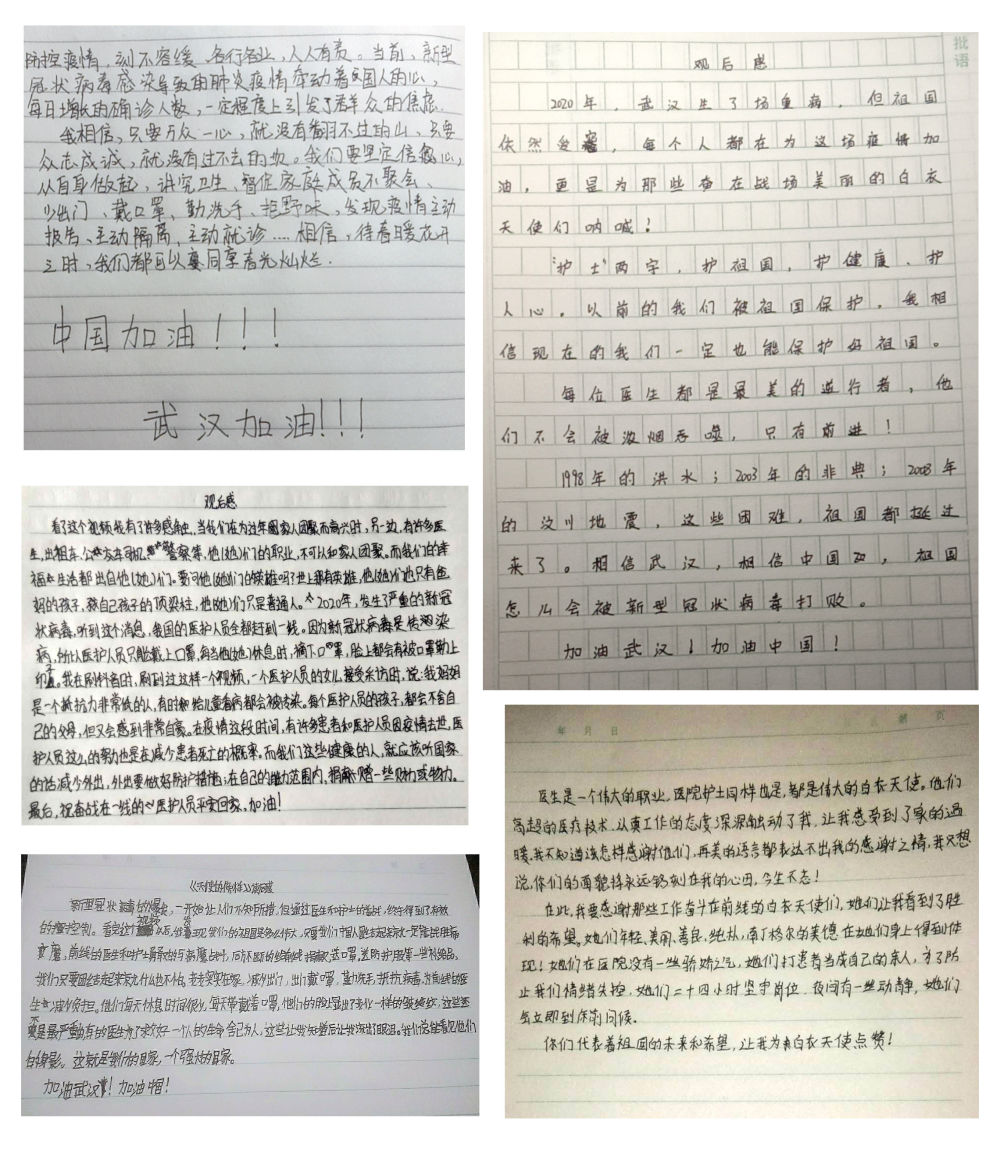 防控疫情，刻不容缓，各行各业，人人有责。当前，新型
冠状病毒感染导致的肺炎疫情牵动着国人的心，
每日增长的确诊人数，一定程度上引发了群众的焦虑.
我相信，只要万众一心，就没有翻不过的山、只要
众志成诚，就没有过不去的坎。我们要坚定信心，
从自身做起，讲究卫生、督促家庭成员不聚会、
少出门、戴口罩、勤洗手、拒野味，发现疫情主动
报告、主动隔离，主动就诊……相信，待春暖花开
之时，我们都可以共同享春光灿烂.
中国加油！！！
武汉加油!!!
观后感
2020年，武汉生了场重病，但祖国
依然爱，每个人都在为这场疫情加
油，更是为那些奋在战场美丽的白衣
天使们呐喊！
“护士”两字，护祖国，护健康、护
人心。以前的我们被祖国保护，我相
信现在的我们一定也能保护好祖国。
每位医生都是最美的逆行者，他
们不会被浓烟吞噬，只有前进！
1998年的洪水；2003年的非典；2008年
的汶川地震，这些困难，祖国都挺过
来了。相信武汉，相信中国，祖国
怎么会被新型冠状病毒打败。
加油武汉！加油中国！
观后感
看了这个视频我有了许多感触，当我们在为过年阖家人团聚而高兴时，另一边，有许多医
生，出租车、公交车司机、警察等，他(她)们的职业，不可以和家人团聚。而我们的幸
福生活都出自他(她)们。要问他(她)们的英雄吗？世上哪有英雄，他(她)们也只有爸
妈的孩子，救自己孩子的顶梁柱，他(她)们只是普通人。2020年，发生了严重的新冠
状病毒，听到这个消息，我国的医护人员全都赶到一线。因为新冠状病毒是传染
病，所以医护人员只能戴上口罩，每当他(她)休息时，摘下口罩，脸上都会有被口罩勒上
印子。我在刷抖音时，刷到过这样一个视频，一个医护人员的女儿，接受采访时，说：我妈妈
是一个抵抗力非常低的人，有时候给儿童看病都会被传染。每个医护人员的孩子，都会不舍自
己的父母，但又会感到非常自豪。在疫情这段时间，有许多患者和医护人员因疫情去世，医
护人员这么的努力也是在减少患者死亡的概率。而我们这些健康的人，就应该听国家
的话减少外出，外出要做好防护措施；在自己的能力范围内，捐赠一些财力或物力。
最后，祝奋战在一线的医护人员平安回家。加油！
医生是一个伟大的职业。医院护士同样也是，都是伟大的白衣天使。他们
高超的医疗技术.认真工作的态度深深触动了我，让我感受到了家的温
暖。我不知道该怎样感谢他们，再美的语言都表达不出我的感谢之情，我只想
说，你们的面貌将永远铭刻在我的心田，今生不忘！
在此，我要感谢那些工作奋斗在前线的白衣天使们，她们让我看到了胜
利的希望。她们年轻、美丽、善良、纯朴，南丁格尔的美德在她们身上得到体
现！她们在医院没有一丝骄娇之气，她们打患者当成自己的亲人，为了防
止我们情绪失控，她们二十四小时坚守岗位.夜间有一些动静，她们
会立即到你前问候.
你们代表着祖国的未来和希望，让我为白衣天使点赞！
《天使的模样》观后感
新型冠状病毒的爆发，一开始让人们不知所措，但通过医生和护士的奋战，终于得到了有效
的控制。看完这个视频以后，我发现我们的祖国是多么伟大，只要我们中国人团结起来就一定能战胜病
魔，前线的医生和护士奋斗在与病魔战斗，同胞们捐赠口罩，送防护服等一些必需品，
我们只要团结起来就无什么也不怕，我要买东西，减少出门，出门戴口罩，勤洗手，抵抗病毒，为前线的医
生减少负担。他们每天休息时间很少，每天带戴着口罩，他们的脸上显出了多么一样的皱纹，这些还
不是最严重的，有的医生为了救好一个人的生命舍己为人，这些让我知道后让我深感了眼泪。我们总能看见他们
的身影。这就是我们的国家，一个强大的国家。
加油武汉！加油中国！